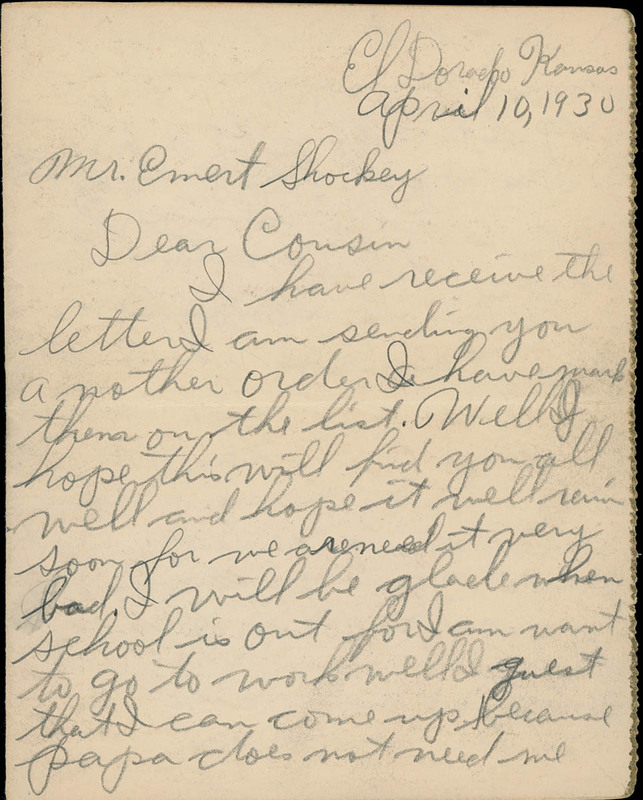 El Dorado Kansas
April 10, 1930
Mr. Emert Shockey
Dear Cousin
I have receive the
letter I am sending you
a nother order I have mark
them on the list. Well I
hope this will find you all
well and hope it well rain
soon for we are need it very
bad. I will be glade when
school is out for I am want
to go to work well I guest
that I can come up because
papa does not need me